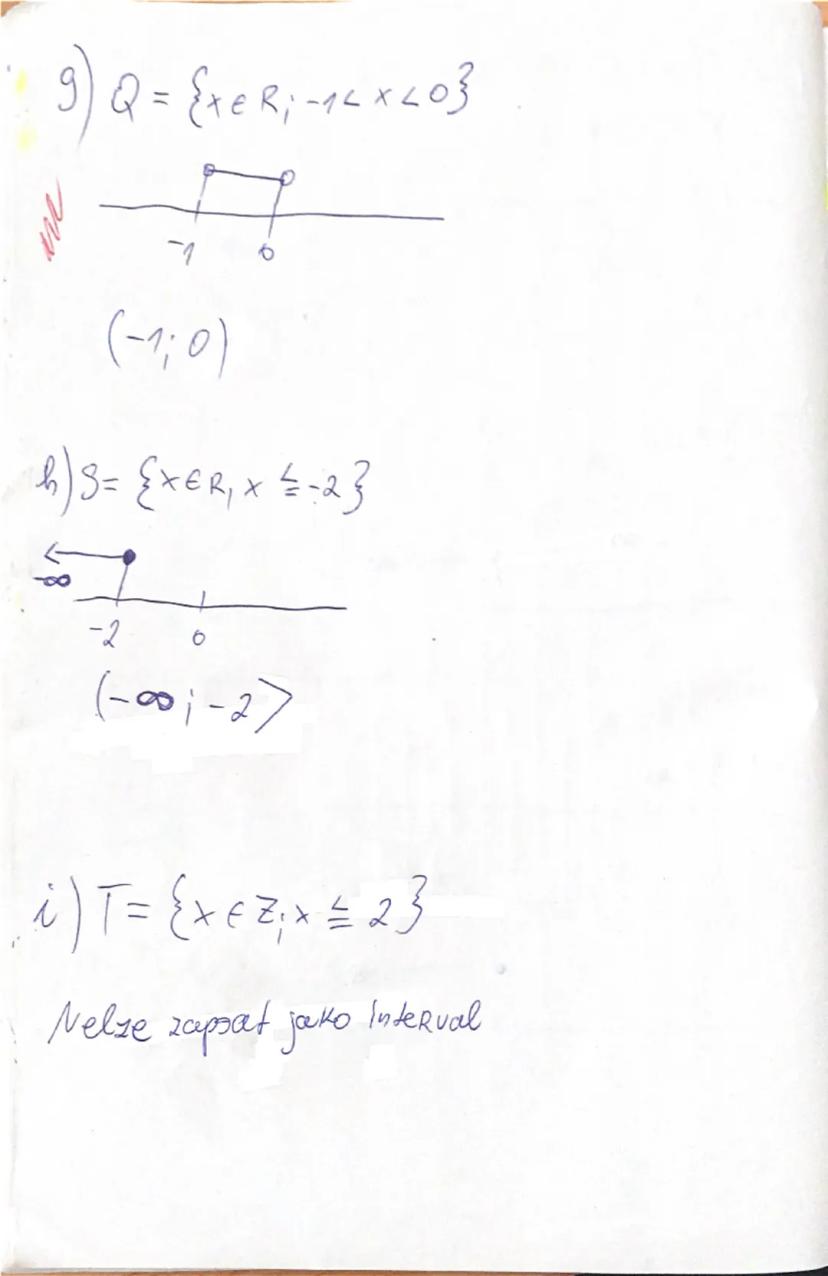 g) Q = {x ∈ R; -1 < x < 0}
-1 0
(-1; 0)
h) S = {x ∈ R, x ≦ -2}
-∞
-2 0
(-∞; -2>
i) T = {x ∈ Z; x ≦ 2}
Nelze zapsat jako interval